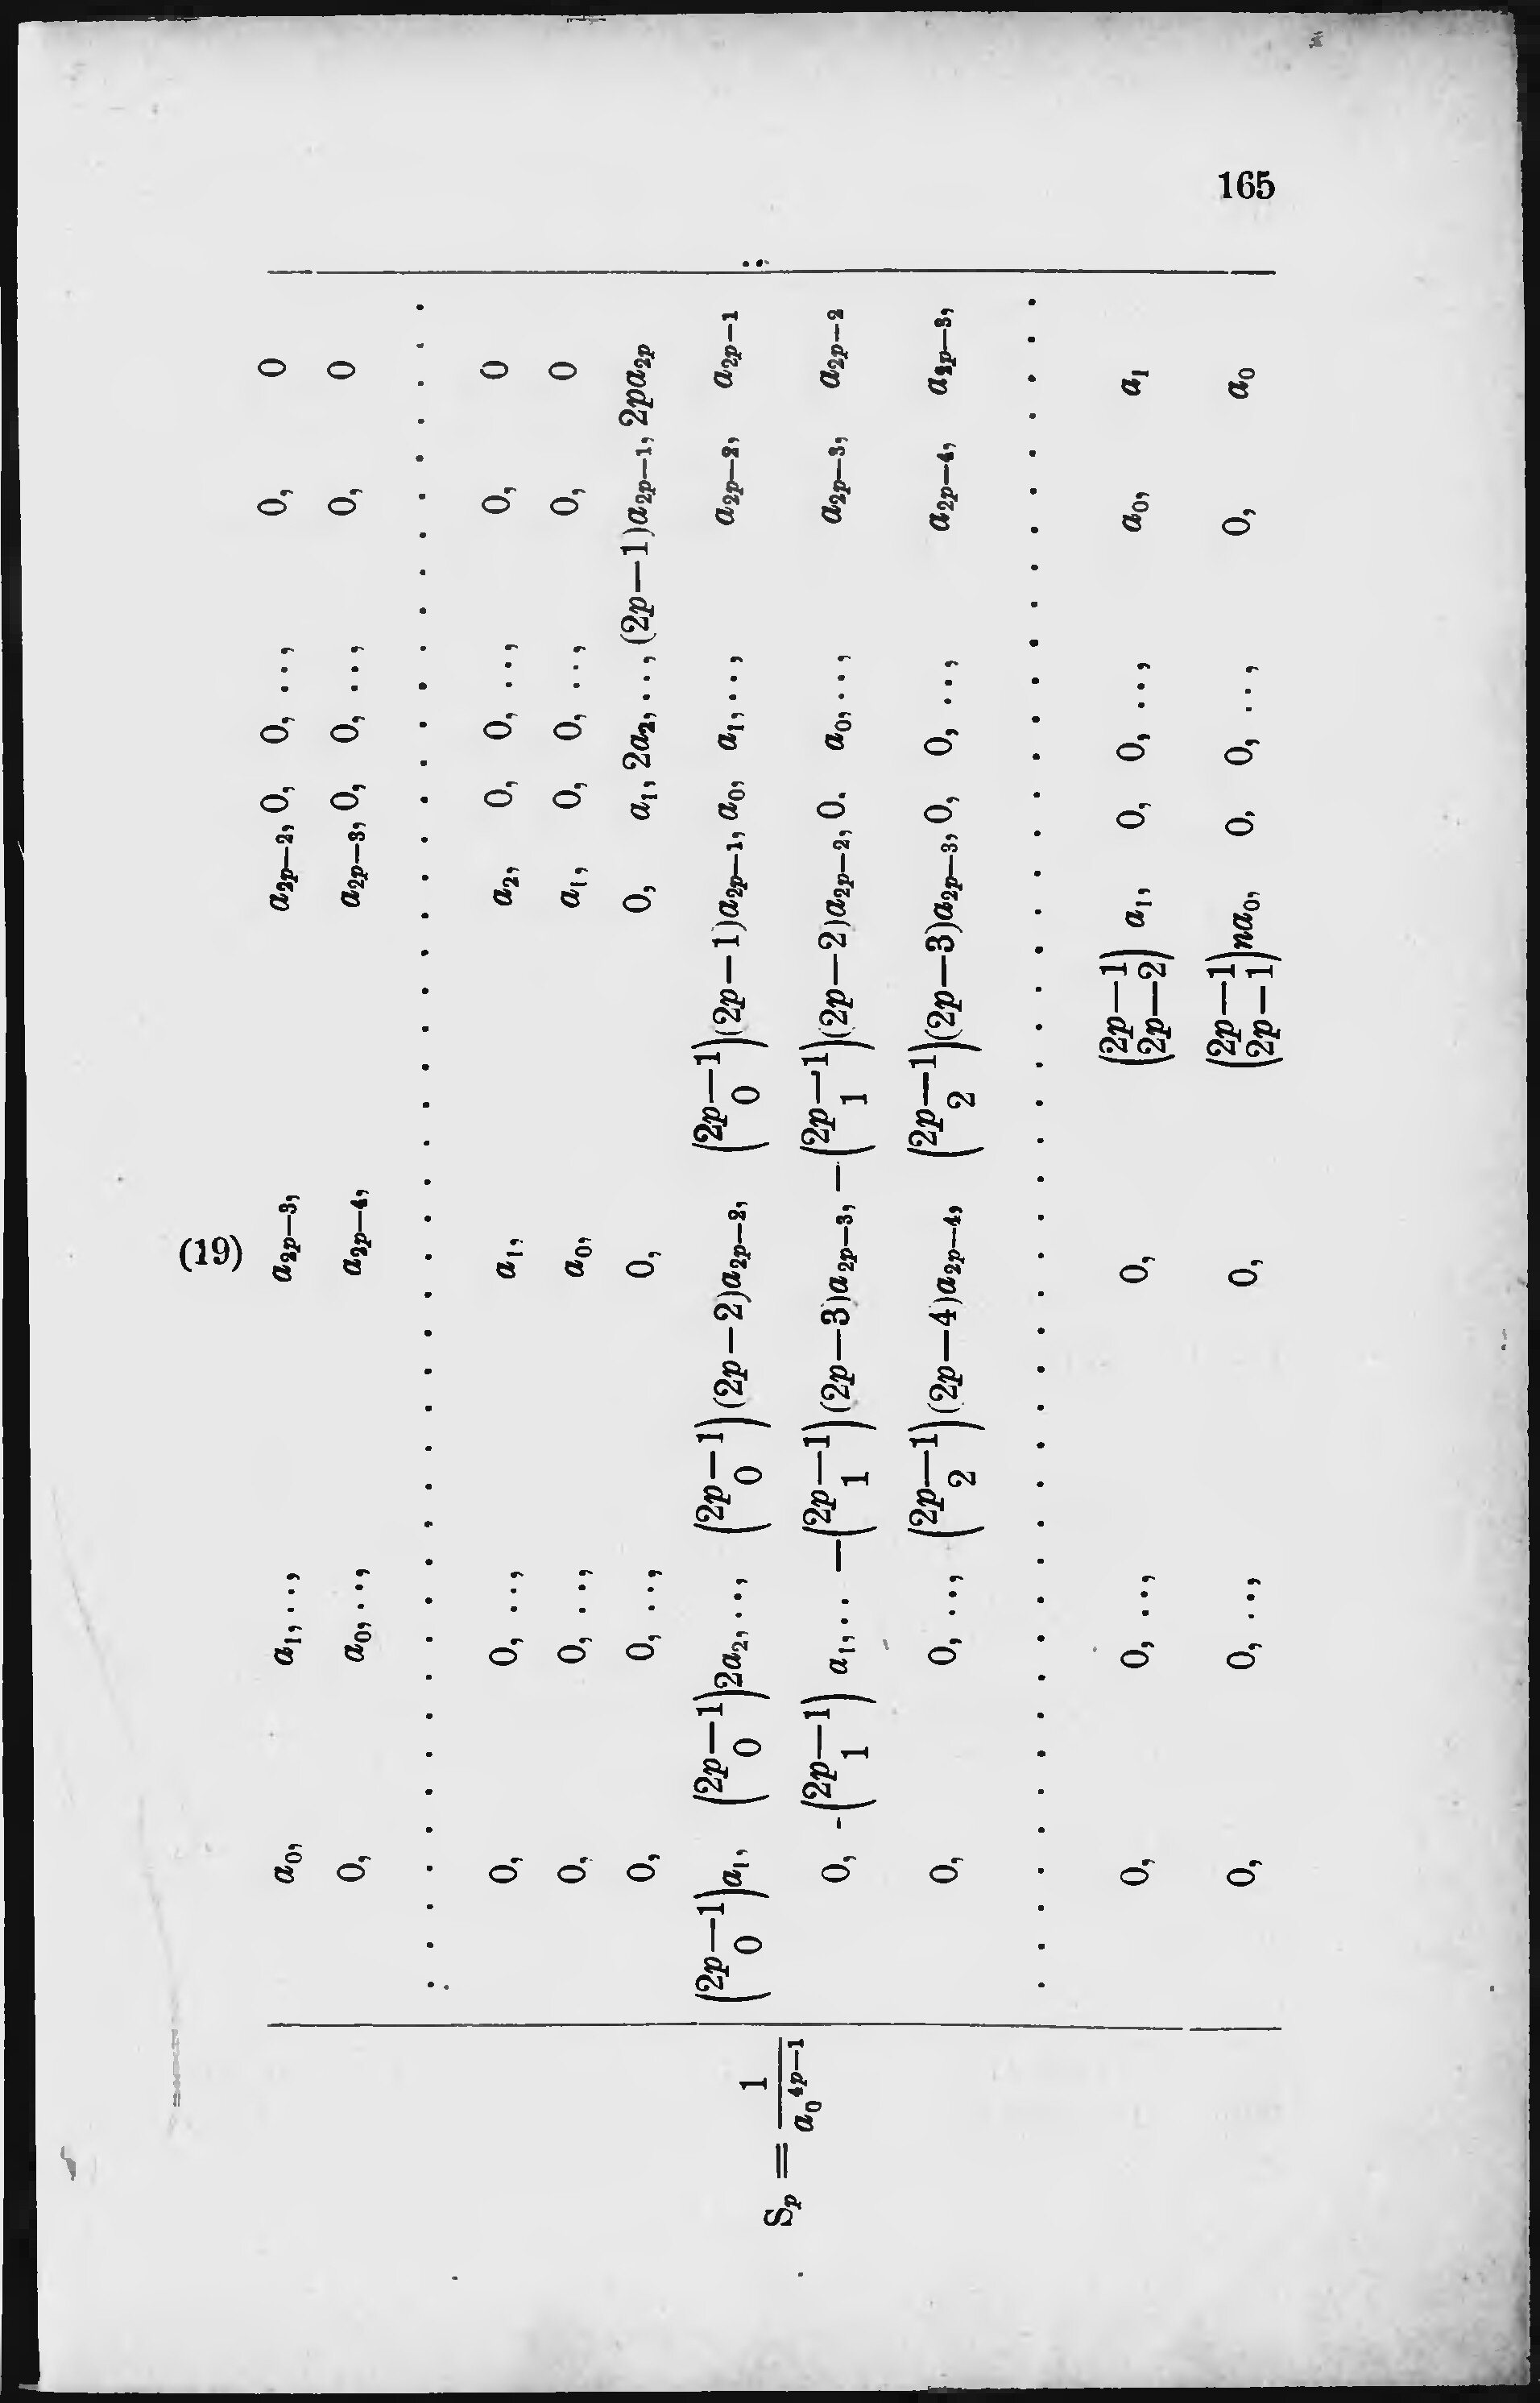 165
(19)
a₀, a₁, .., a₂ₚ₋₃, a₂ₚ₋₂, 0, 0, ..., 0, 0
0, a₀, .., a₂ₚ₋₄, a₂ₚ₋₃, 0, 0, ..., 0, 0
. . . . . . . . . . . . . . . . . . . .
0, 0, .., a₁, a₂, 0, 0, ..., 0, 0
0, 0, .., a₀, a₁, 0, 0, ..., 0, 0
0, 0, .., 0, 0, a₁, 2a₂, .., (2p—1)a₂ₚ₋₁, 2pa₂ₚ
S_p = 1/a₀^{4p—1} \binom{2p—1}{0}a₁, \binom{2p—1}{0}2a₂, .., \binom{2p—1}{0}(2p—2)a₂ₚ₋₂, \binom{2p—1}{0}(2p—1)a₂ₚ₋₁, a₀, a₁, .., a₂ₚ₋₂, a₂ₚ₋₁ ∴
0, -\binom{2p—1}{1} a₁, .. —\binom{2p—1}{1}(2p—3)a₂ₚ₋₃, —\binom{2p—1}{1}(2p—2)a₂ₚ₋₂, 0. a₀, .., a₂ₚ₋₃, a₂ₚ₋₂
0, 0, .., \binom{2p—1}{2}(2p—4)a₂ₚ₋₄, \binom{2p—1}{2}(2p—3)a₂ₚ₋₃, 0, 0, .., a₂ₚ₋₄, a₂ₚ₋₃,
. . . . . . . . . . . . . . . . . . . .
0, 0, .., 0, \binom{2p—1}{2p—2} a₁, 0, 0, ..., a₀, a₁
0, 0, .., 0, \binom{2p—1}{2p—1}na₀, 0, 0, ..., 0, a₀